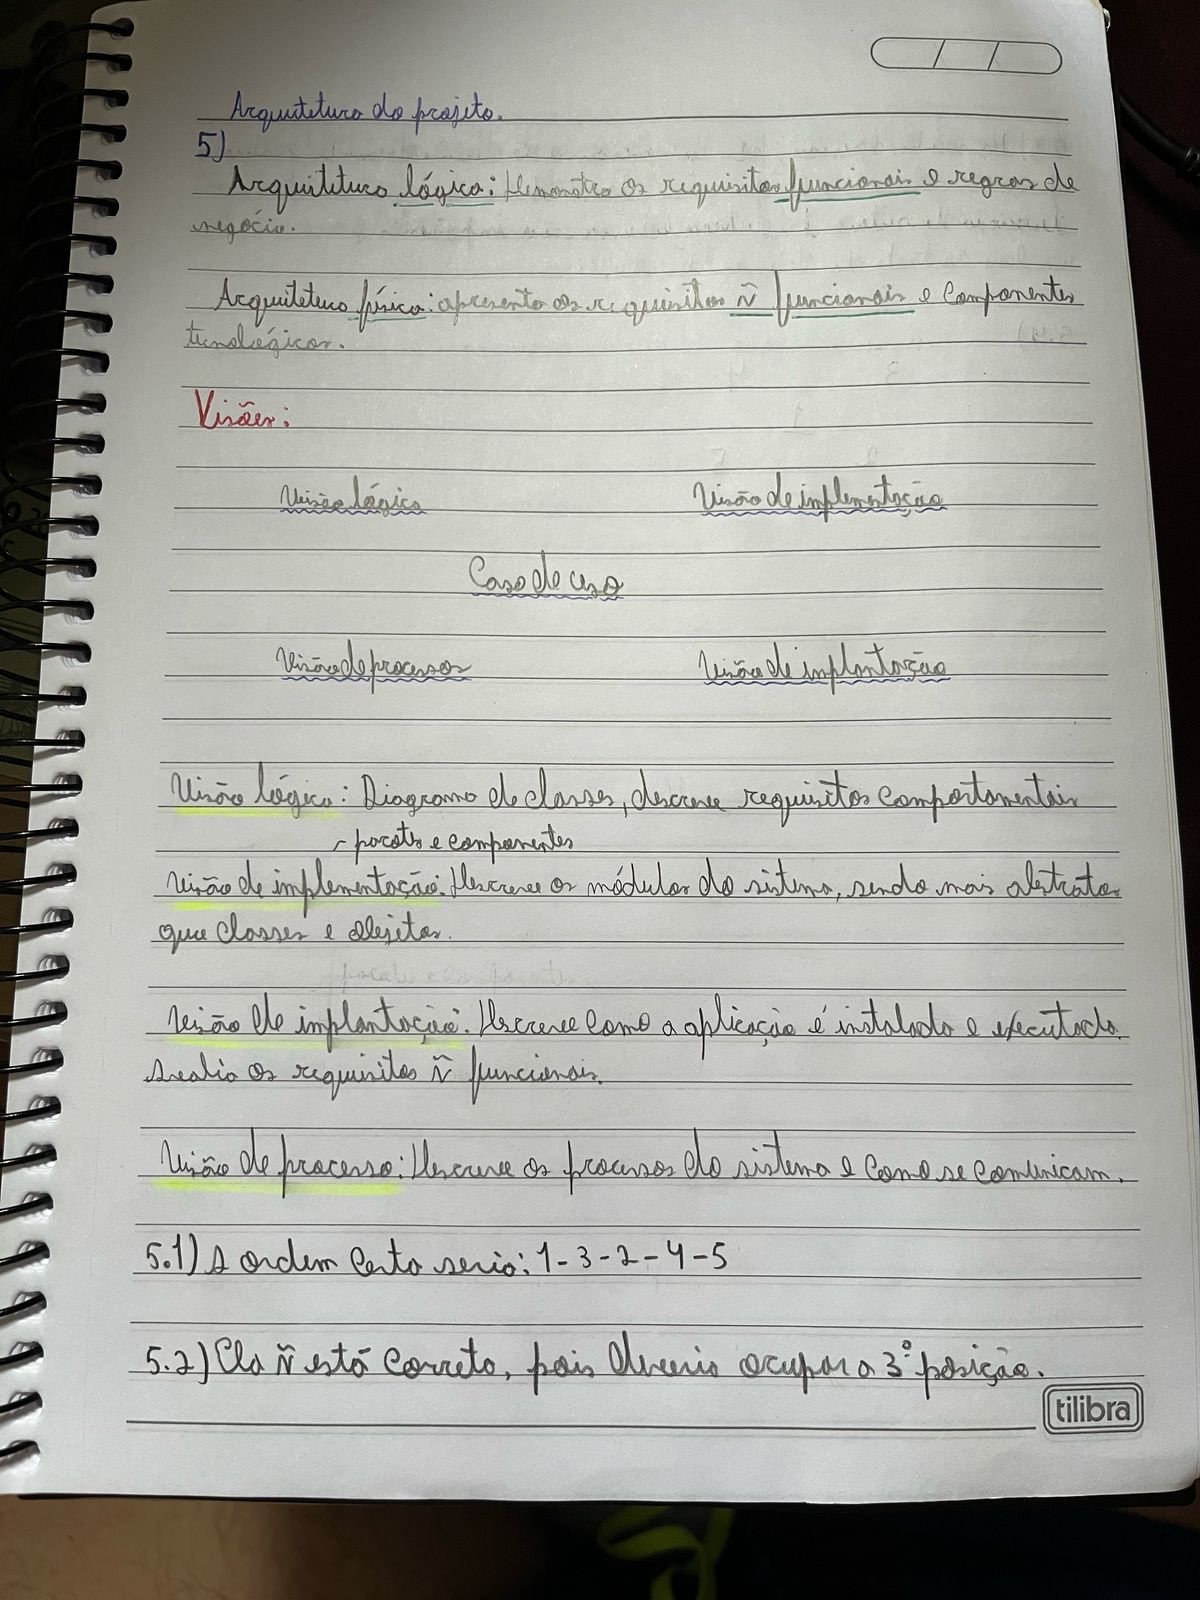 Arquitetura do projeto.
5)
Arquitetura lógica: Demonstra os requisitos funcionais e regras de
negócio.
Arquitetura física: apresenta os requisitos ñ funcionais e componentes
tecnológicos.
Visões:
Visão lógica Visão de implementação
Caso de uso
Visão de processos Visão de implantação
Visão lógica: Diagrama de classes, descreve requisitos comportamentais
- pacotes e componentes
Visão de implementação: Descreve os módulos do sistema, sendo mais abstratos
que classes e objetos.
Visão de implantação: Descreve como a aplicação é instalada e executada.
Avalia os requisitos ñ funcionais.
Visão de processo: Descreve os processos do sistema e como se comunicam.
5.1) A ordem certa seria: 1-3-2-4-5
5.2) Ela ñ está correta, pois deveria ocupar a 3° posição.
tilibra